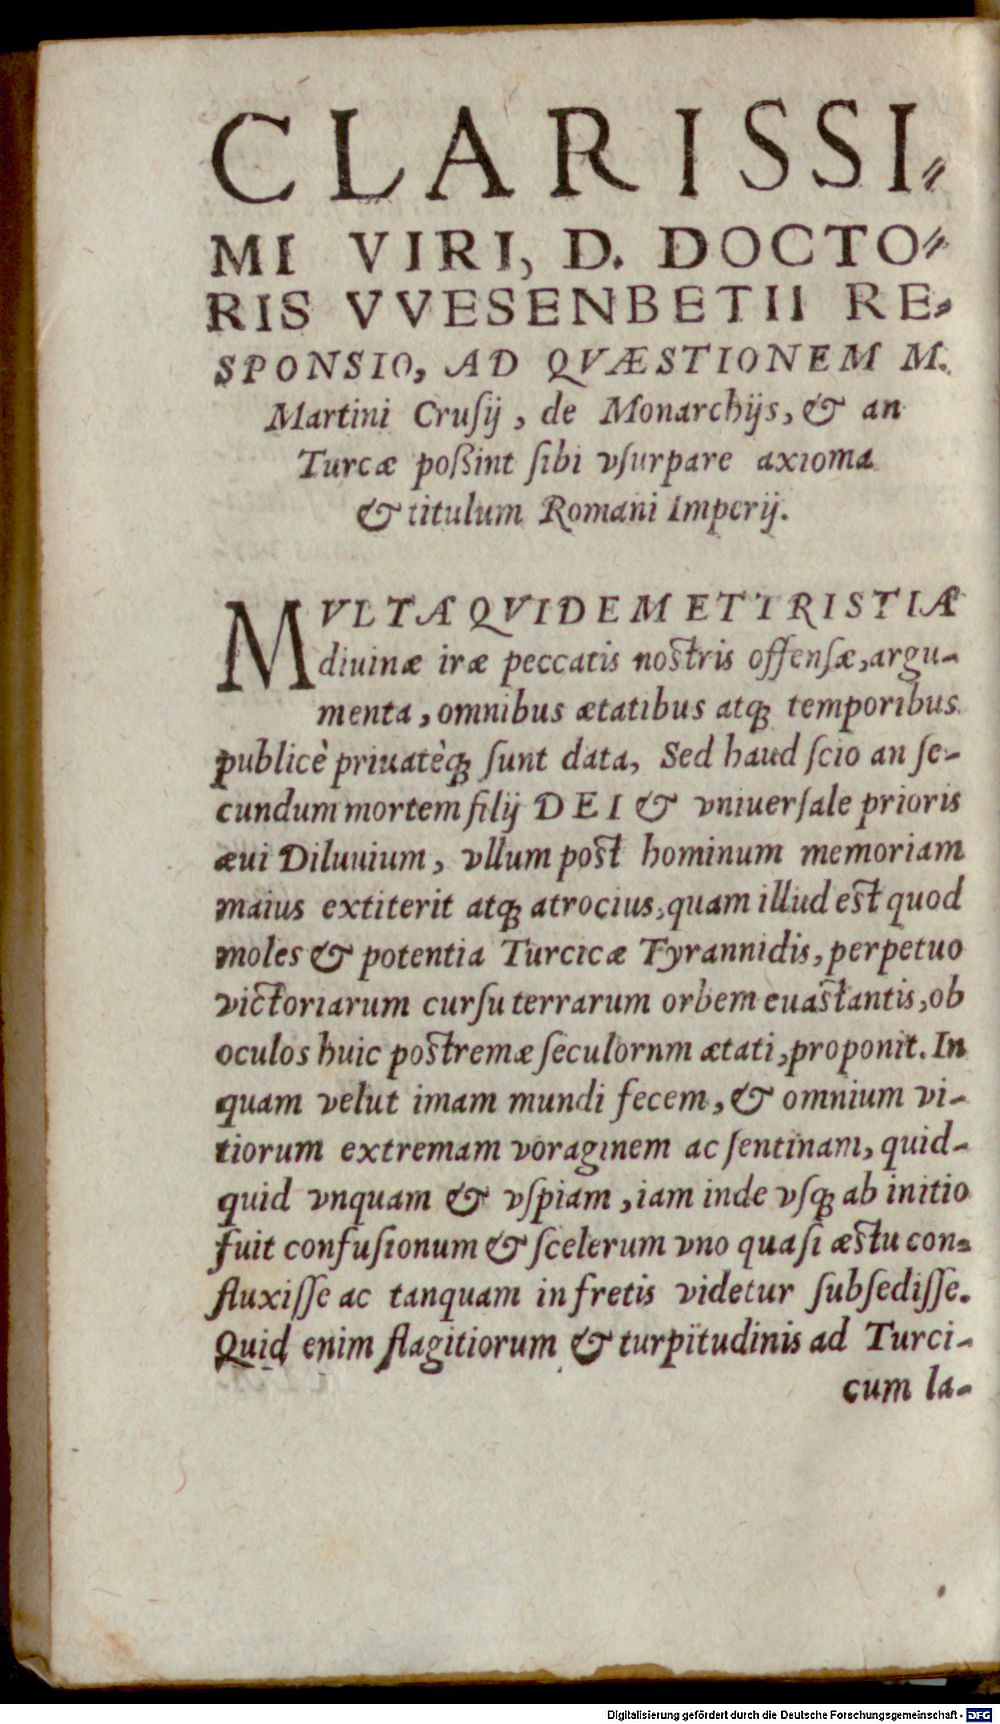 CLARISSI-
MI VIRI, D. DOCTO-
RIS VVESENBETII RE-
SPONSIO, AD QVÆSTIONEM M.
Martini Cruſij, de Monarchijs, & an
Turcæ poßint ſibi vſurpare axioma
& titulum Romani Imperij.
MVLTA QVIDEM ET TRISTIA
diuinæ iræ peccatis noſtris offenſæ, argu-
menta, omnibus ætatibus atq; temporibus
publicè priuatèq; ſunt data, Sed haud ſcio an ſe-
cundum mortem filij DEI & vniuerſale prioris
æui Diluuium, vllum poſt hominum memoriam
maius extiterit atq; atrocius, quam illud eſt quod
moles & potentia Turcicæ Tyrannidis, perpetuo
victoriarum curſu terrarum orbem euaſtantis, ob
oculos huic poſtremæ ſeculornm ætati, proponit. In
quam velut imam mundi fecem, & omnium vi-
tiorum extremam voraginem ac ſentinam, quid-
quid vnquam & vſpiam, iam inde vſq; ab initio
fuit confuſionum & ſcelerum vno quaſi æſtu con-
fluxiſſe ac tanquam in fretis videtur ſubſediſſe.
Quid enim flagitiorum & turpitudinis ad Turci-
cum la-
Digitalisierung gefördert durch die Deutsche Forschungsgemeinschaft - DFG